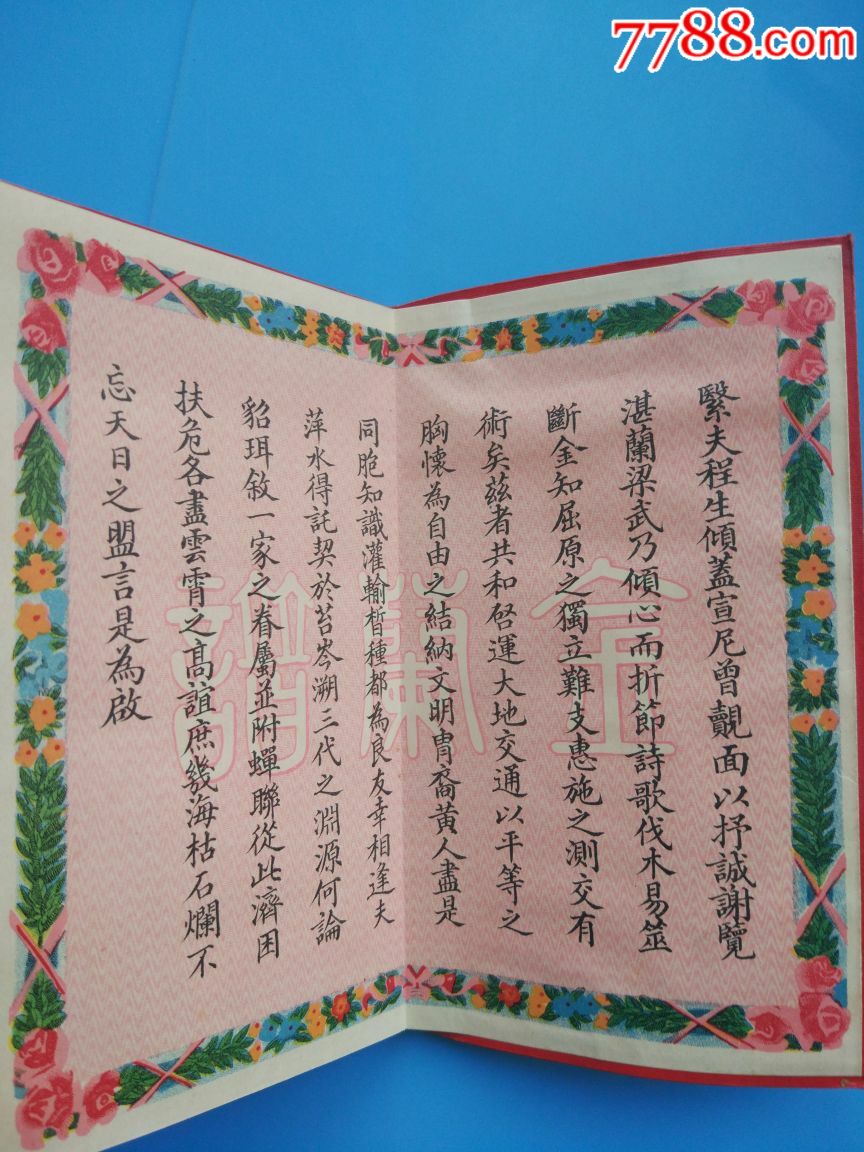 7788.com
緊夫程生傾蓋宣尼曾覿面以抒誠謝覽
湛蘭梁武乃傾心而折節詩歌伐木易筮
斷金知屈原之獨立難支惠施之測交有
術矣茲者共和啓運大地交通以平等之
胸懷為自由之結納文明冑裔黃人盡是
同胞知識灌輸晳種都為良友幸相逢夫
萍水得託契於苔岑溯三代之淵源何論
貂珥敘一家之眷屬並附蟬聯從此濟困
扶危各盡雲霄之高誼庶幾海枯石爛不
忘天日之盟言是為啟
金蘭譜